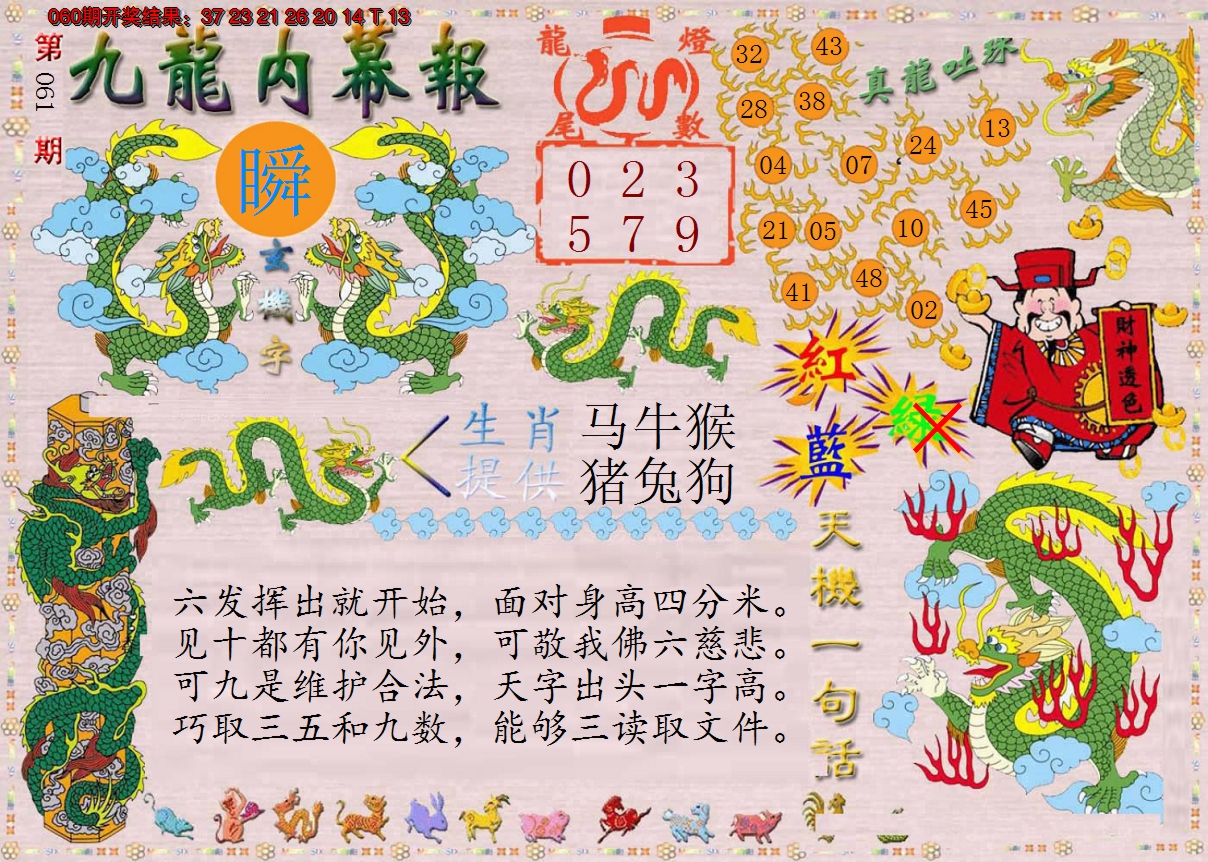 060期开奖结果：37 23 21 26 20 14 T 13
第061期
九龍内幕報
瞬
玄機字
龍燈
尾數
0 2 3
5 7 9
真龍吐珠
32
43
28
38
24
13
04
07
21
05
10
45
41
48
02
財神透色
紅
綠
藍
生肖
提供
马牛猴
猪兔狗
六发挥出就开始，面对身高四分米。
见十都有你见外，可敬我佛六慈悲。
可九是维护合法，天字出头一字高。
巧取三五和九数，能够三读取文件。
天機一句话